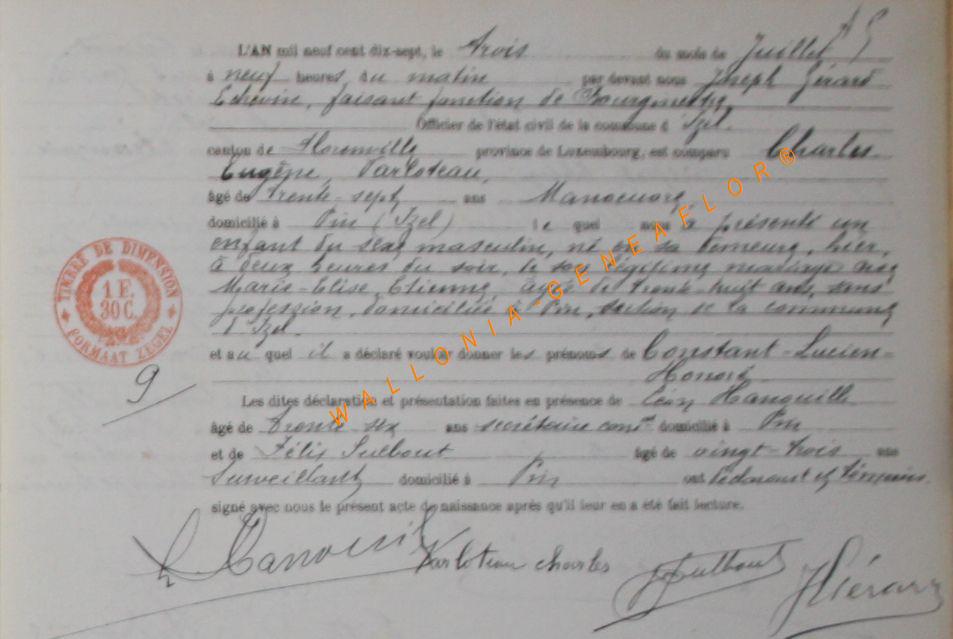 L'AN mil neuf cent dix-sept, le trois du mois de Juillet
à neuf heures du matin par devant nous Joseph Gérard
Echevin, faisant fonction de Bourgmestre,
Officier de l'état civil de la commune d'Izel.
canton de Florenville province de Luxembourg, est comparu Charles
Eugène, Parloteau,
âgé de trente-sept ans Manoeuvre
domicilié à Pin (Izel) le quel nous a présenté un
enfant du sexe masculin, né en sa demeure, hier,
à deux heures du soir, de son légitime mariage avec
Marie-Elise, Etienne, âgée de trente huit ans, sans
profession, domiciliée à Pin, section de la commune
d'Izel.
TIMBRE DE DIMENSION
1 F.
30 C.
FORMAAT ZEGEL
9
et au quel il a déclaré vouloir donner les prénoms de Constant-Lucien-
Honoré
Les dites déclaration et présentation faites en présence de Léon
âgé de trente six ans secrétaire comal domicilié à Pin
et de Félix Sulbout âgé de vingt-trois ans
Surveillant domicilié à Pin ont déclarant et témoins
signé avec nous le présent acte de naissance après qu'il leur en a été fait lecture.
Parloteau charles
Sulbout
JGérard
WALLONIA-GENEAFLOR®